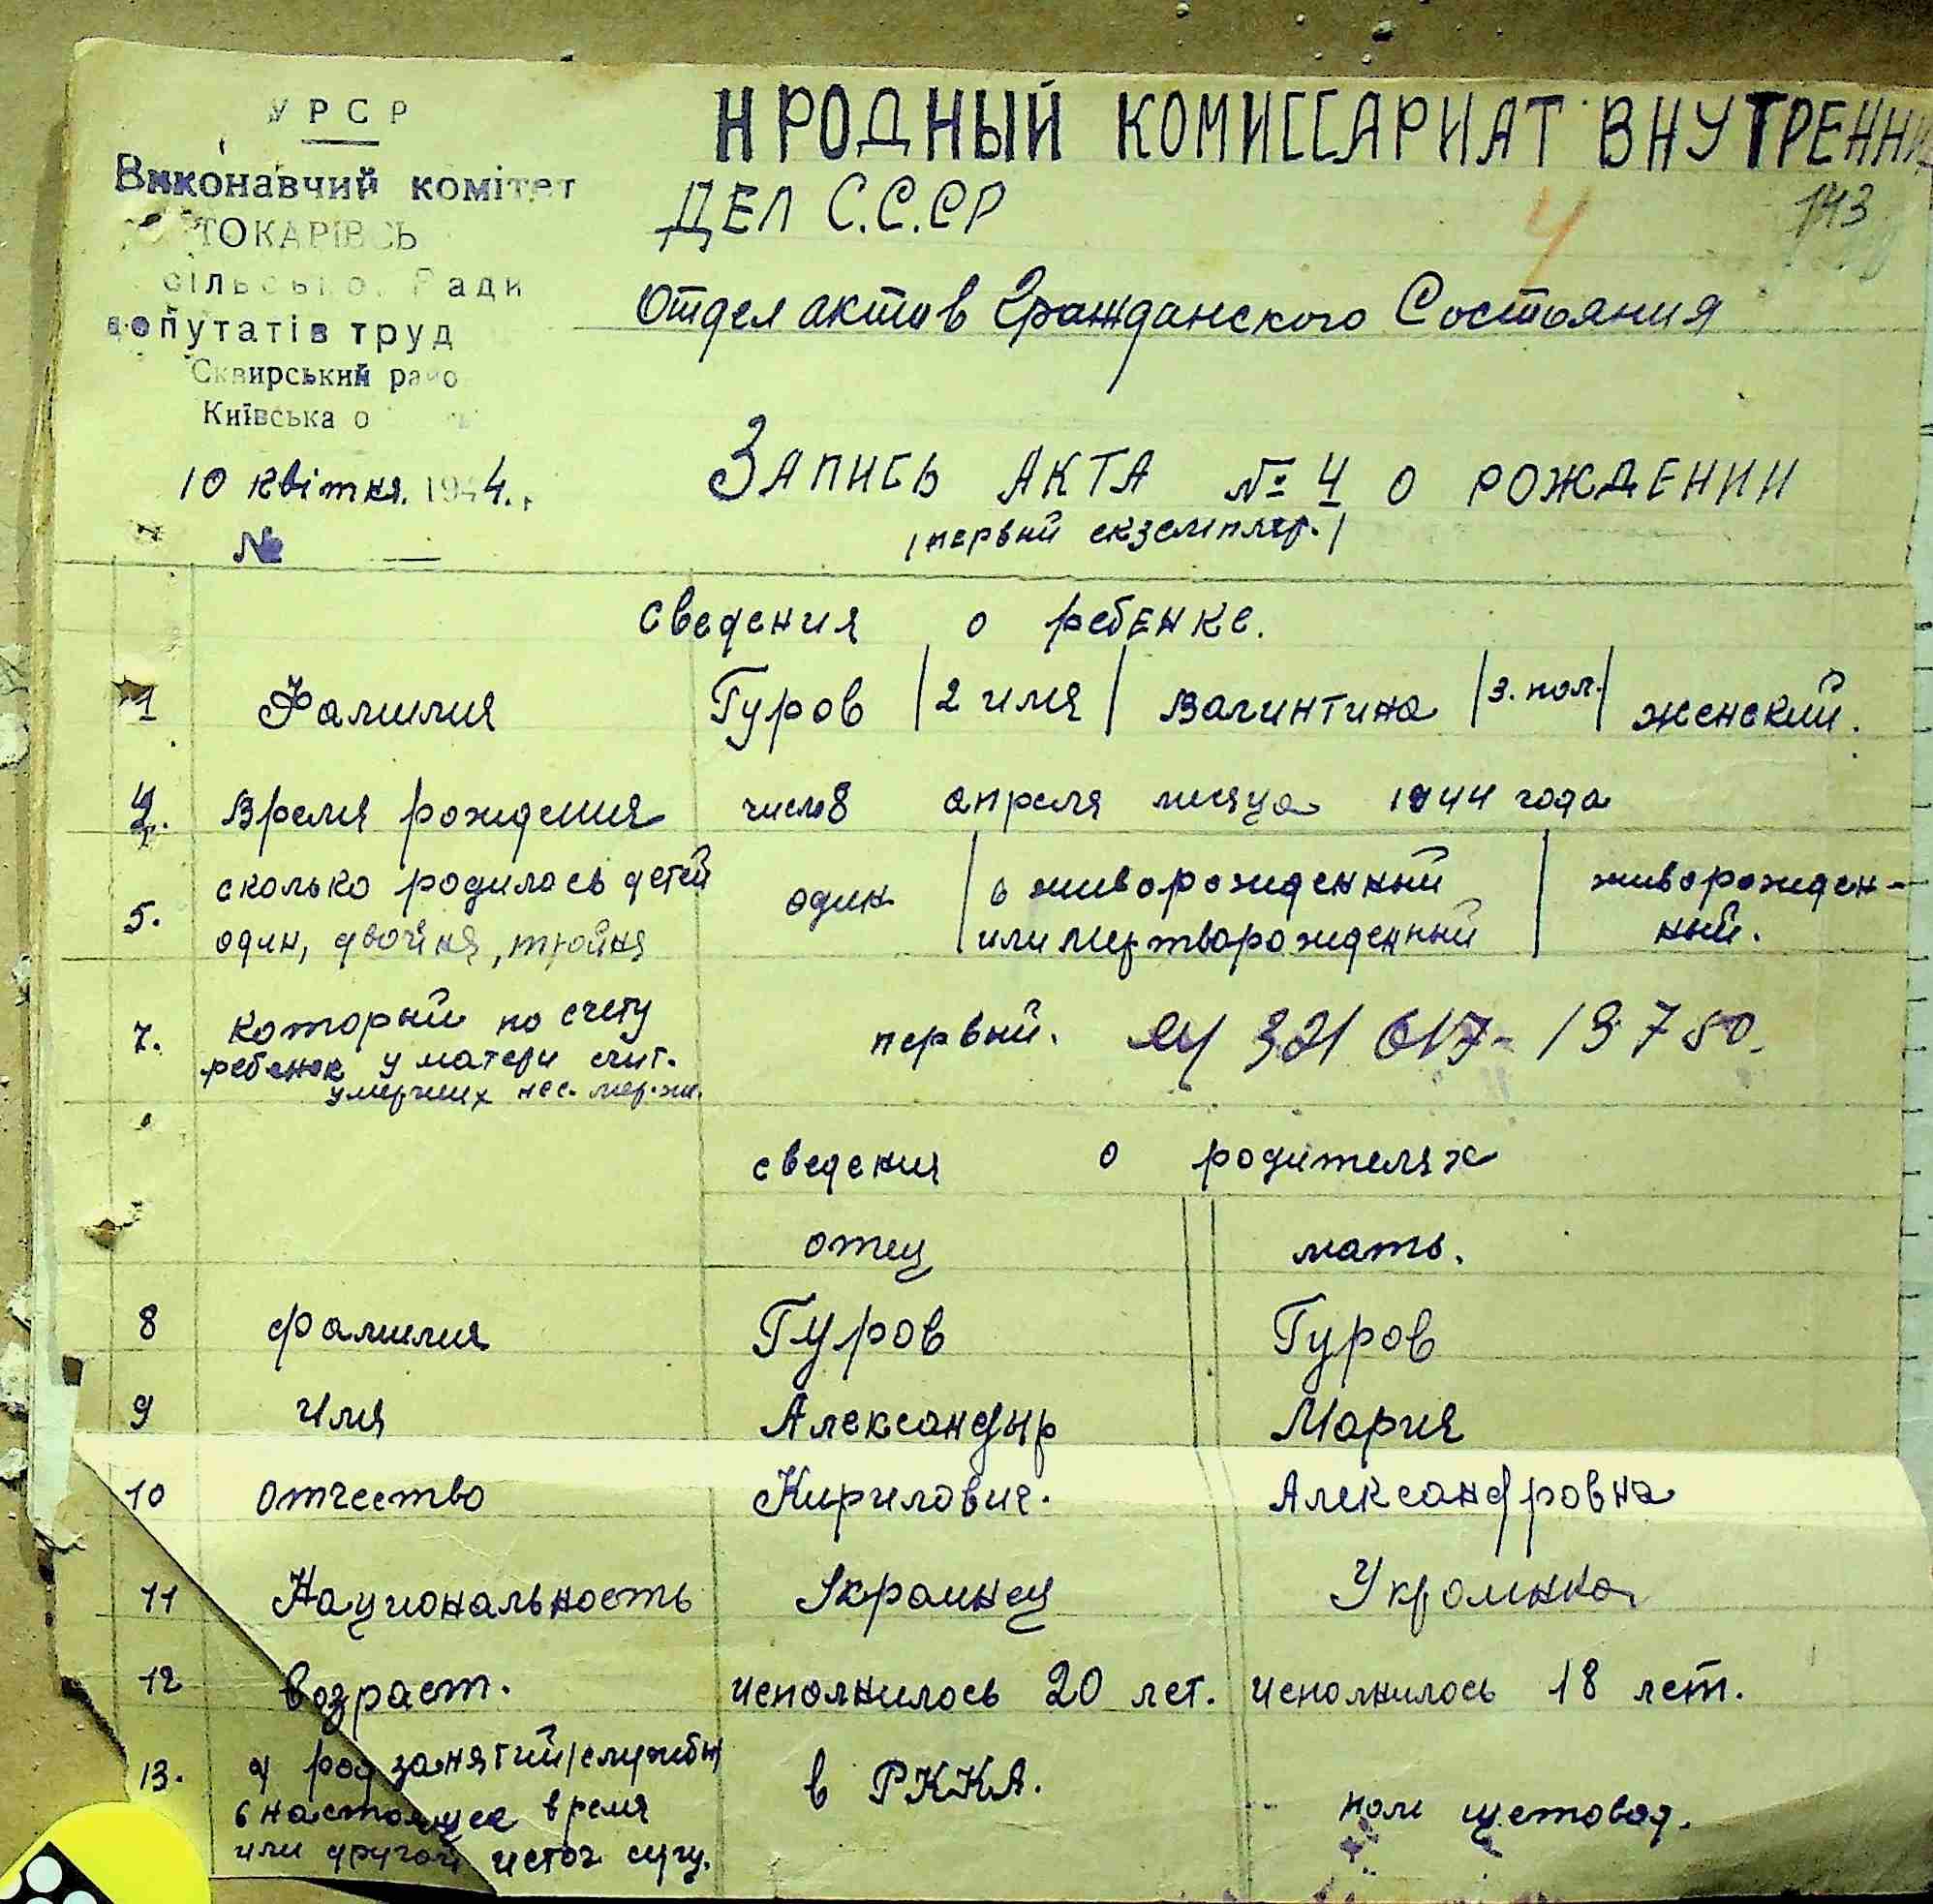 УРСР
Виконавчий комітет
ТОКАРІВСЬ
сільсько Ради
депутатів труд
Сквирський райо
Київська о
10 квітня. 1944. г.
№ —
НРОДНЫЙ КОМИССАРИАТ ВНУТРЕННИ
ДЕЛ С.С.СР
4
143
Отдел актов Гражданского Состояния
ЗАПИСЬ АКТА № 4 О РОЖДЕНИИ
/первый екземпляр./
Сведения о ребенке.
1 Фамилия Гуров | 2 имя | Валинтина | 3. пол. | женский.
4. Время рождения число 8 апреля месяца 1944 года
5. сколько родилось детей один, двойня, тройня один | 6 живорожденный или мертворожденный | живорожден-
ный.
7. который по счету
ребенок у матери счит.
умерших нес. мер.жи.
первый. 321 617- 13780.
сведения о родителях
отец мать.
8 фамилия Гуров Гуров
9 имя Александыр Мария
10 отчество Кирилович. Александровна
11 Национальность Украинец Украинка
12 возраст. исполнилось 20 лет. исполнилось 18 лет.
13. а/ род занятий/службы/
в настоящее время
или другой источ сущ.
в РККА.
пом щетовод.